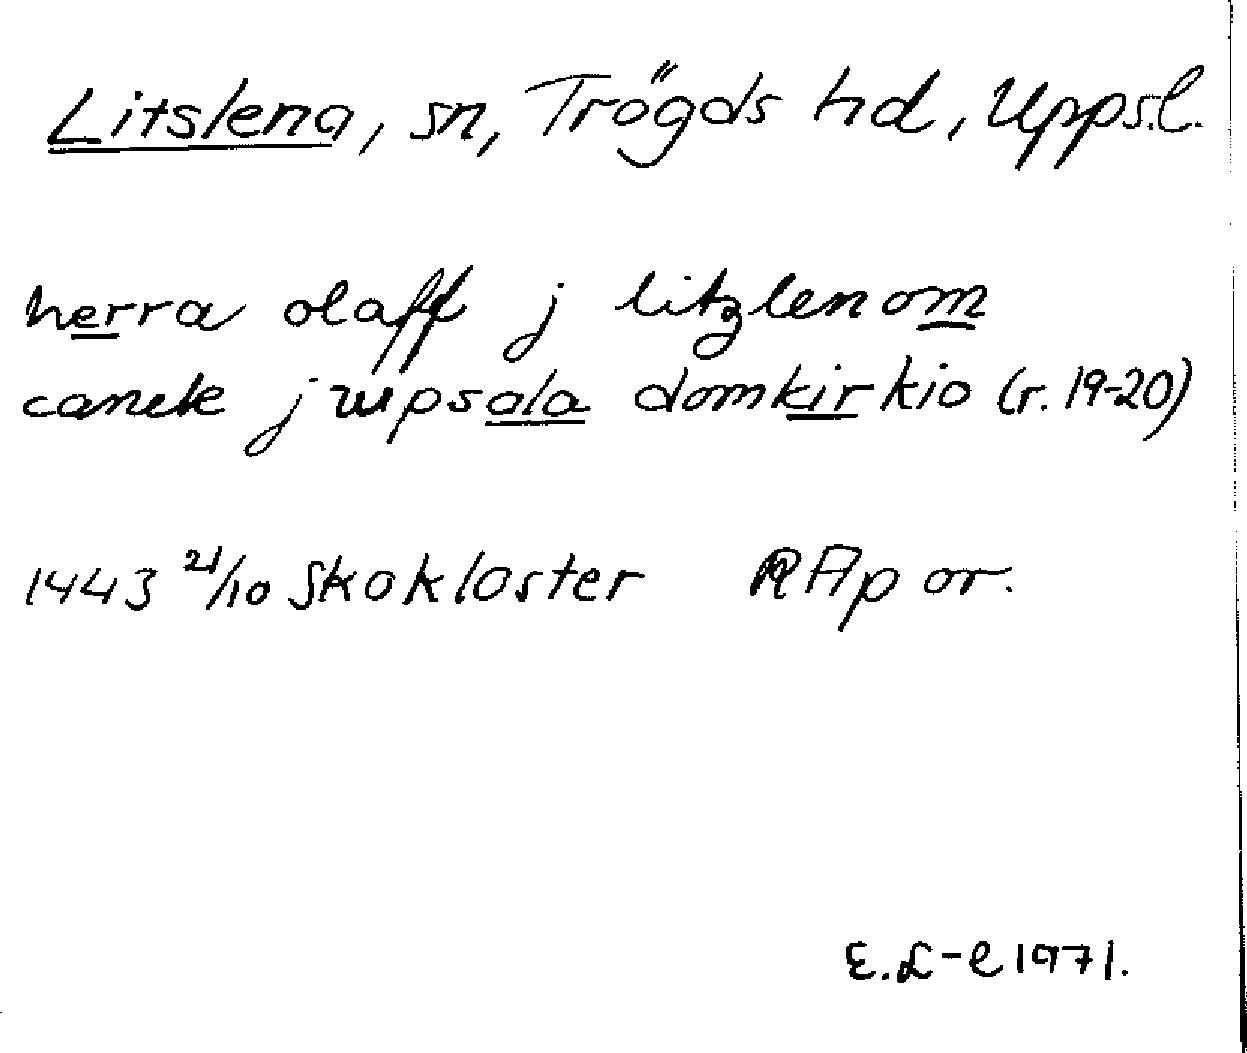 Litslena, sn, Trögds hd, Uppsl.
herra olaff j litzlenom
canek j wpsala domkirkio (r. 19-20)
1443 21/10 Skokloster RAp or.
E.L-e 1971.